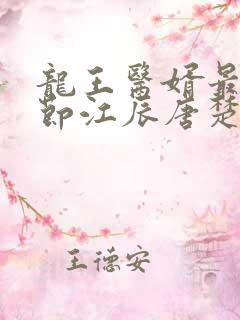 龍王醫婿最
節江辰唐楚
王德安